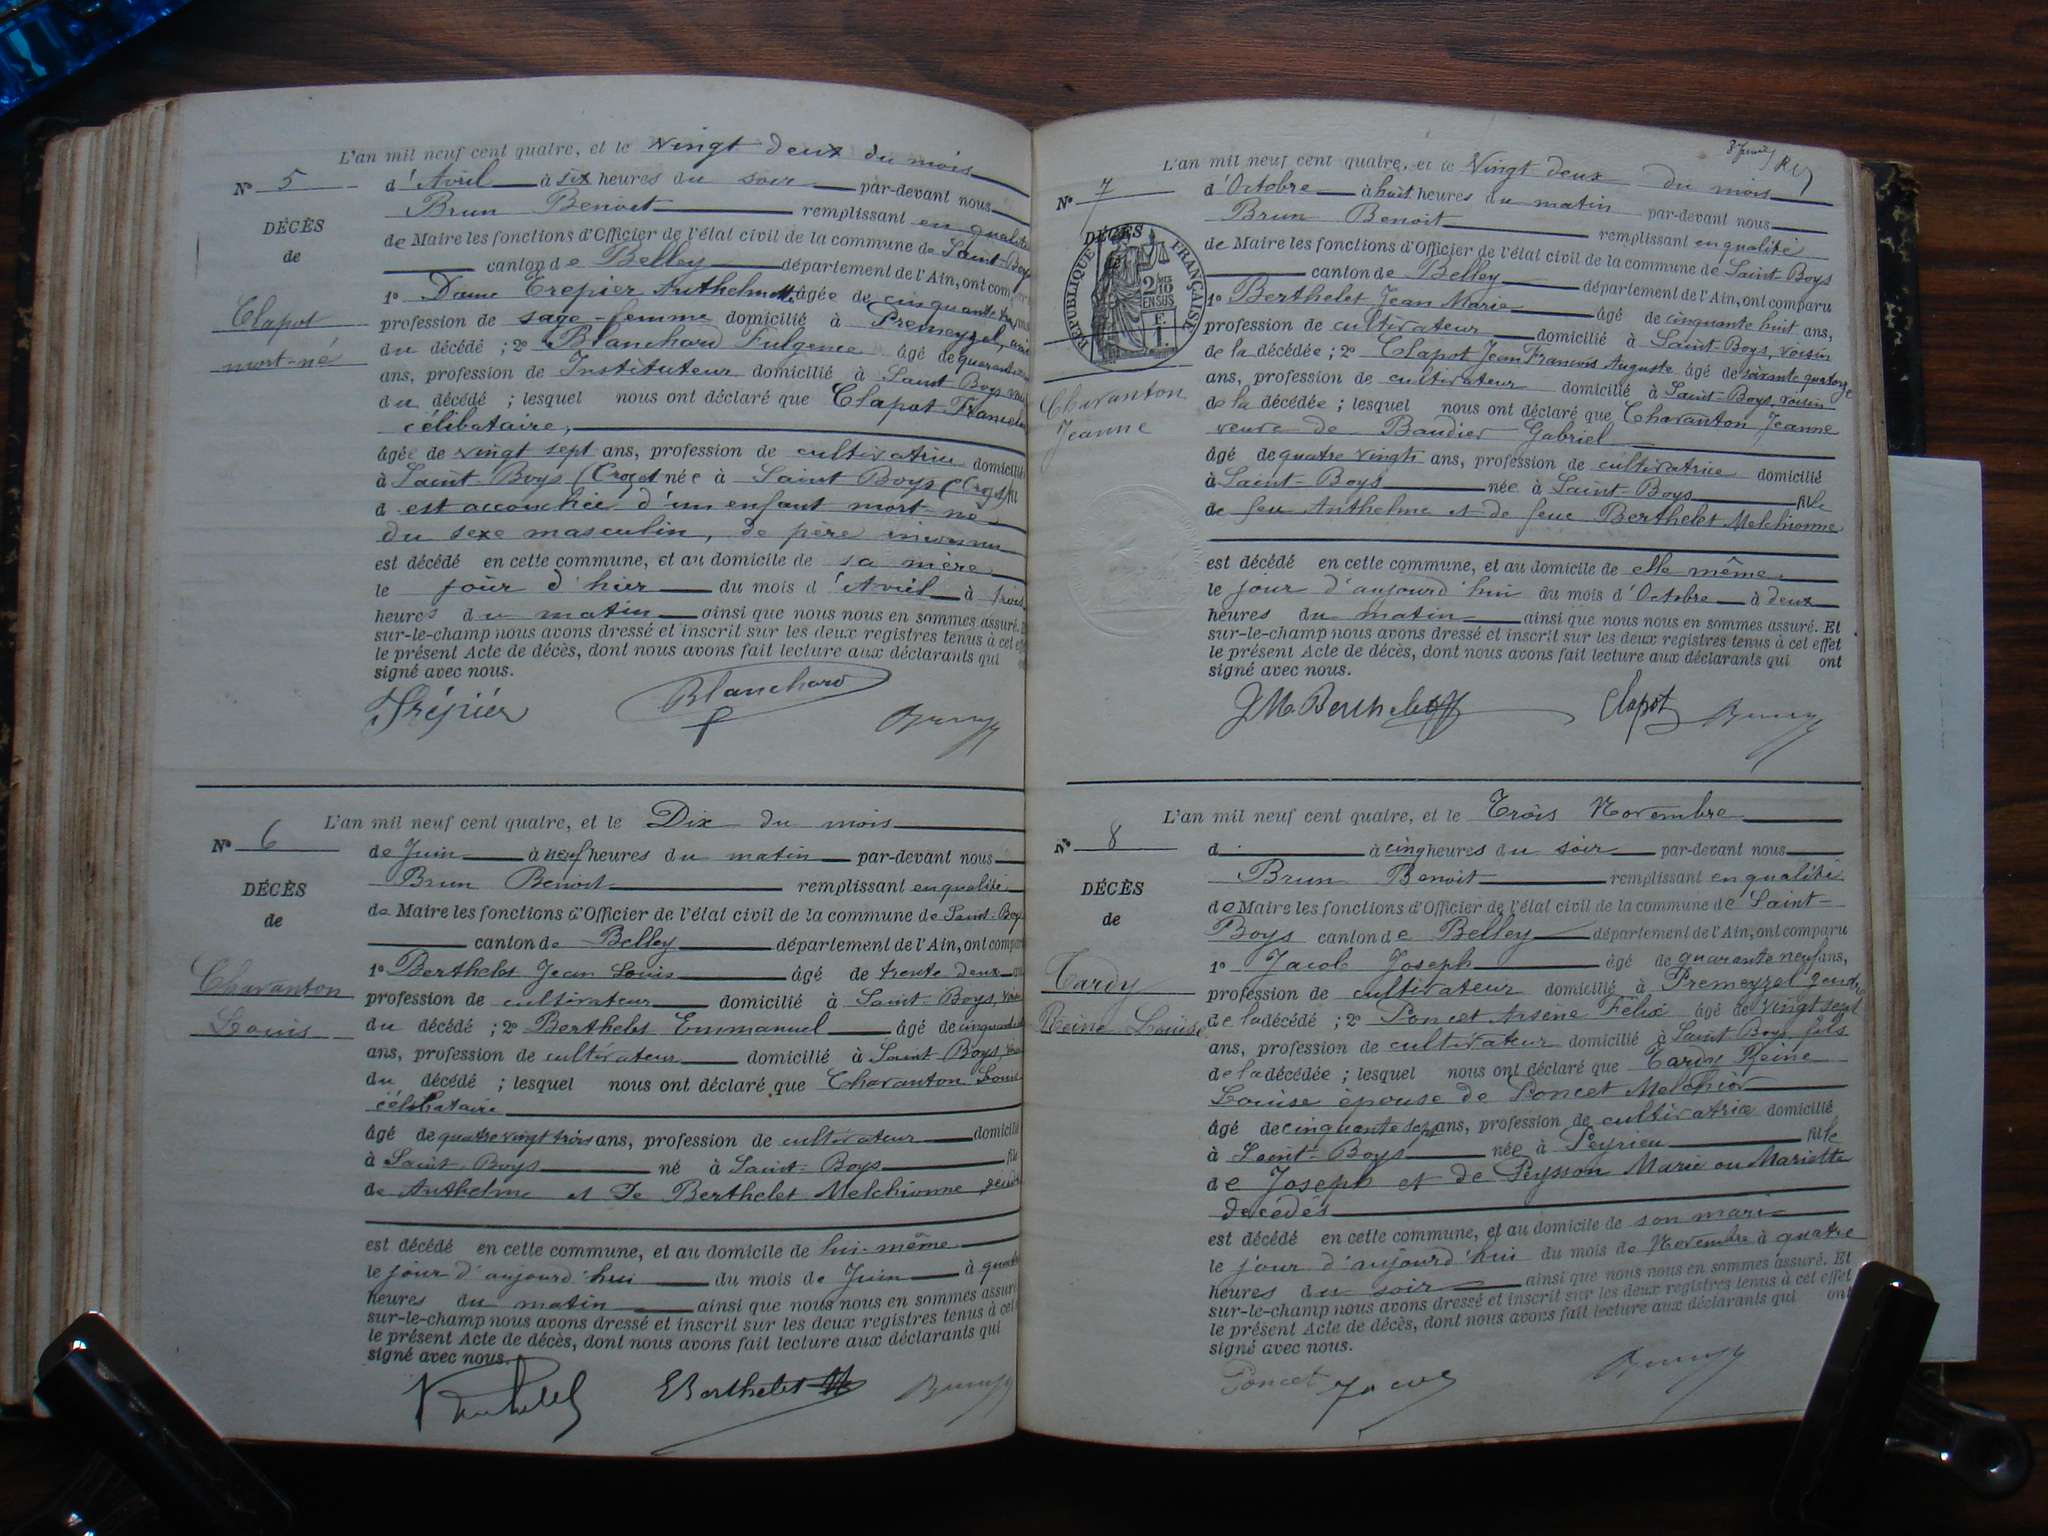 L'an mil neuf cent quatre, et le vingt deux du mois
N° 5
d'Avril à six heures du soir par-devant nous
Brun Benoit remplissant en qualité
DÉCÈS
de Maire les fonctions d'Officier de l'état civil de la commune de Saint-Boys
de
canton de Belley département de l'Ain, ont comparu
1° Dame Trepier Anthelmette âgée de cinquante
Clapot
profession de sage-femme domicilié à Premeyzel,
mort-né
du décédé ; 2° Blanchard Fulgence âgé de quarante
ans, profession de Instituteur domicilié à Saint Boys
du décédé ; lesquel nous ont déclaré que Clapot
célibataire,
âgée de vingt sept ans, profession de cultivatrice domicilié
à Saint-Boys (Crozet née à Saint Boys (Crozet)
d est accouchée d'un enfant mort-né
du sexe masculin, de père inconnu
est décédé en cette commune, et au domicile de sa mère
le jour d'hier du mois d'Avril à trois
heures du matin ainsi que nous nous en sommes assuré.
sur-le-champ nous avons dressé et inscrit sur les deux registres tenus à cet
le présent Acte de décès, dont nous avons fait lecture aux déclarants qui
signé avec nous.
Trépier Blanchard Brun
L'an mil neuf cent quatre, et le Dix du mois
N° 6
de Juin à neuf heures du matin par-devant nous
Brun Benoit remplissant en qualité
DÉCÈS
de Maire les fonctions d'Officier de l'état civil de la commune de Saint-Boys
de
canton de Belley département de l'Ain, ont comparu
1° Berthelet Jean Louis âgé de trente deux ans
Charanton
profession de cultivateur domicilié à Saint-Boys, voisin
Louis
du décédé ; 2° Berthelet Emmanuel âgé de cinquante
ans, profession de cultivateur domicilié à Saint Boys,
du décédé ; lesquel nous ont déclaré que Charanton Louis
célibataire
âgé de quatre vingt trois ans, profession de cultivateur domicilié
à Saint-Boys né à Saint-Boys fils
de Anthelme et de Berthelet Melchionne,
est décédé en cette commune, et au domicile de lui-même
le jour d'aujourd'hui du mois de Juin à quatre
heures du matin ainsi que nous nous en sommes assuré
sur-le-champ nous avons dressé et inscrit sur les deux registres tenus à cet
le présent Acte de décès, dont nous avons fait lecture aux déclarants qui
signé avec nous.
Berthelet EBerthelet Brun
L'an mil neuf cent quatre, et le Vingt deux du mois
N° 7
d'Octobre à huit heures du matin par-devant nous
Brun Benoit remplissant en qualité
DÉCÈS
RÉPUBLIQUE FRANÇAISE
2/10 EN SUS
F. 1.
de Maire les fonctions d'Officier de l'état civil de la commune de Saint-Boys
canton de Belley département de l'Ain, ont comparu
1° Berthelet Jean Marie âgé de cinquante huit ans,
profession de cultivateur domicilié à Saint-Boys, voisin
de la décédée ; 2° Clapot Jean François Auguste âgé de soixante quatorze
ans, profession de cultivateur domicilié à Saint-Boys, voisin
Charanton
Jeanne
de la décédée ; lesquel nous ont déclaré que Charanton Jeanne
veuve de Baudier Gabriel
âgé de quatre vingts ans, profession de cultivatrice domicilié
à Saint-Boys née à Saint-Boys fille
de feu Anthelme et de feue Berthelet Melchionne
est décédé en cette commune, et au domicile de elle même.
le jour d'aujourd'hui du mois d'Octobre à deux
heures du matin ainsi que nous nous en sommes assuré. Et
sur-le-champ nous avons dressé et inscrit sur les deux registres tenus à cet effet
le présent Acte de décès, dont nous avons fait lecture aux déclarants qui ont
signé avec nous.
JM Berthelet Clapot Brun
L'an mil neuf cent quatre, et le Trois Novembre
N° 8
d à cinq heures du soir par-devant nous
Brun Benoit remplissant en qualité
DÉCÈS
de Maire les fonctions d'Officier de l'état civil de la commune de Saint-
de
Boys canton de Belley département de l'Ain, ont comparu
1° Jacob Joseph âgé de quarante neuf ans,
Tardy
profession de cultivateur domicilié à Premeyzel gendre
Reine Louise
de la décédé ; 2° Poncet Arsène Félix âgé de vingt sept
ans, profession de cultivateur domicilié à Saint Boys, fils
de la décédée ; lesquel nous ont déclaré que Tardy Reine
Louise épouse de Poncet Melchior
âgé de cinquante sept ans, profession de cultivatrice domicilié
à Saint-Boys née à Peyrieu fille
de Joseph et de Peysson Marie ou Mariette
décédés
est décédé en cette commune, et au domicile de son mari
le jour d'aujourd'hui du mois de Novembre à quatre
heures du soir ainsi que nous nous en sommes assuré. Et
sur-le-champ nous avons dressé et inscrit sur les deux registres tenus à cet effet
le présent Acte de décès, dont nous avons fait lecture aux déclarants qui ont
signé avec nous.
Poncet Jacob Brun